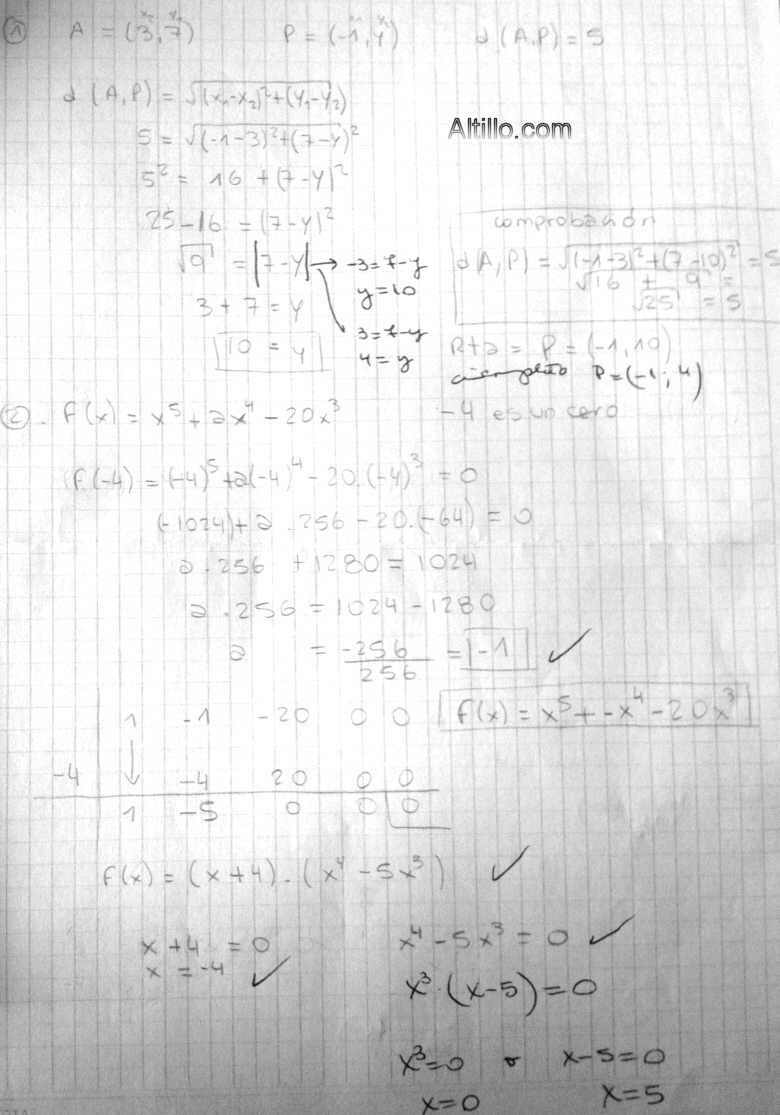 ① A = (3, 7) P = (-1, y) d (A,P) = 5
x₂ y₂ x₁ y₁
d (A,P) = √(x₁-x₂)²+(y₁-y₂)
Altillo.com
5 = √(-1-3)²+(7-y)²
5² = 16 + (7-y)²
25-16 = (7-y)²
√9 = |7-y| → -3=7-y
y=10
3 + 7 = y
3=7-y
10 = y
4=y
comprobación
d(A,P) = √(-1-3)²+(7-10)² = 5
√16 + 9 =
√25 = 5
Rta = P = (-1,10)
incompleto P=(-1; 4)
② . f(x) = x⁵ + ax⁴ - 20x³ -4 es un cero
f(-4) = (-4)⁵+a(-4)⁴ - 20.(-4)³ = 0
(-1024)+a.256 - 20.(-64) = 0
a.256 + 1280 = 1024
a.256 = 1024 - 1280
a = -256/256 = -1 ✓
f(x) = x⁵ + -x⁴ - 20x³
1 -1 -20 0 0
↓
-4 -4 20 0 0
1 -5 0 0 0
f(x) = (x+4).(x⁴ - 5x³) ✓
x + 4 = 0
x = -4 ✓
x⁴ - 5x³ = 0 ✓
x³.(x-5) = 0
x³=0 o x-5=0
x=0 x=5